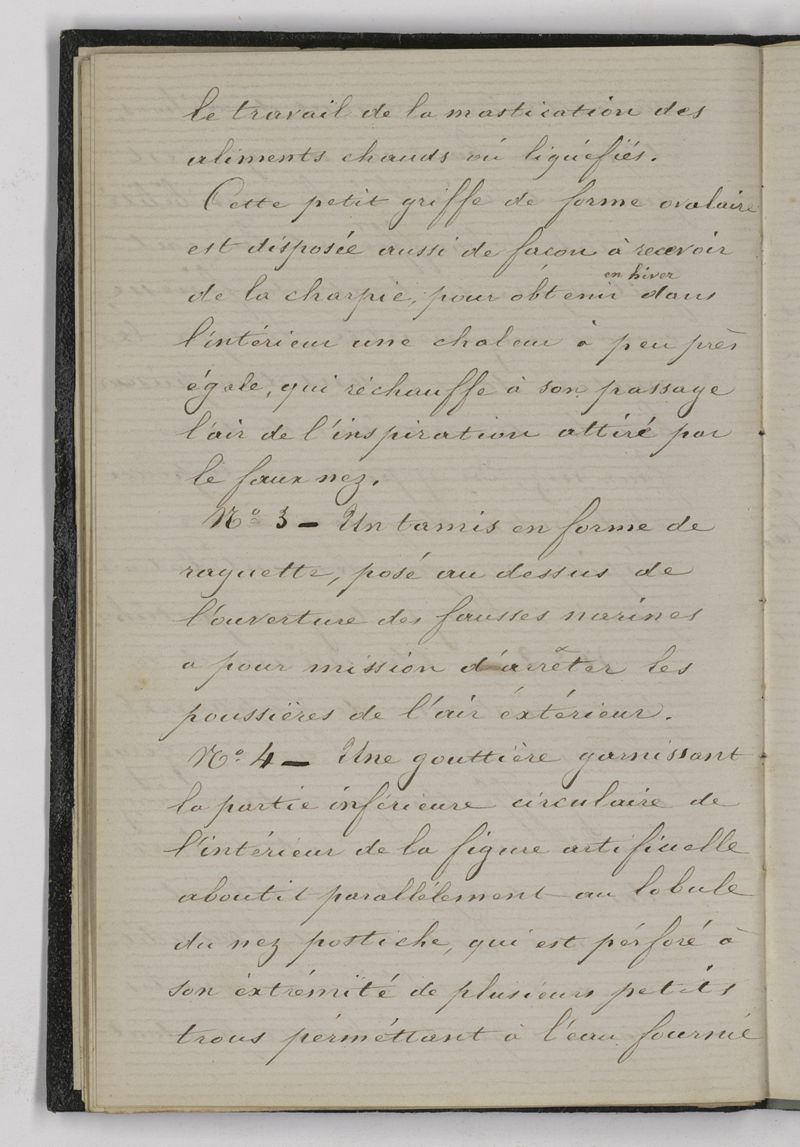 le travail de la mastication des
aliments chauds ou liquéfiés.
Cette petit griffe de forme ovalaire
est disposée aussi de façon à recevoir
en hiver
de la charpie, pour obtenir dans
l'intérieur une chaleur à peu près
égale, qui réchauffe à son passage
l'air de l'inspiration attiré par
le faux nez.
No 3 — Un tamis en forme de
raquette, posé au dessus de
l'ouverture des fausses narines
a pour mission d'arrêter les
poussières de l'air éxtérieur.
No 4 — Une gouttière garnissant
la partie inférieure circulaire de
l'intérieur de la figure artificielle
aboutit parallèlement au lobule
du nez postiche, qui est pérforé à
son éxtrémité de plusieurs petits
trous pérméttant à l'eau fournie